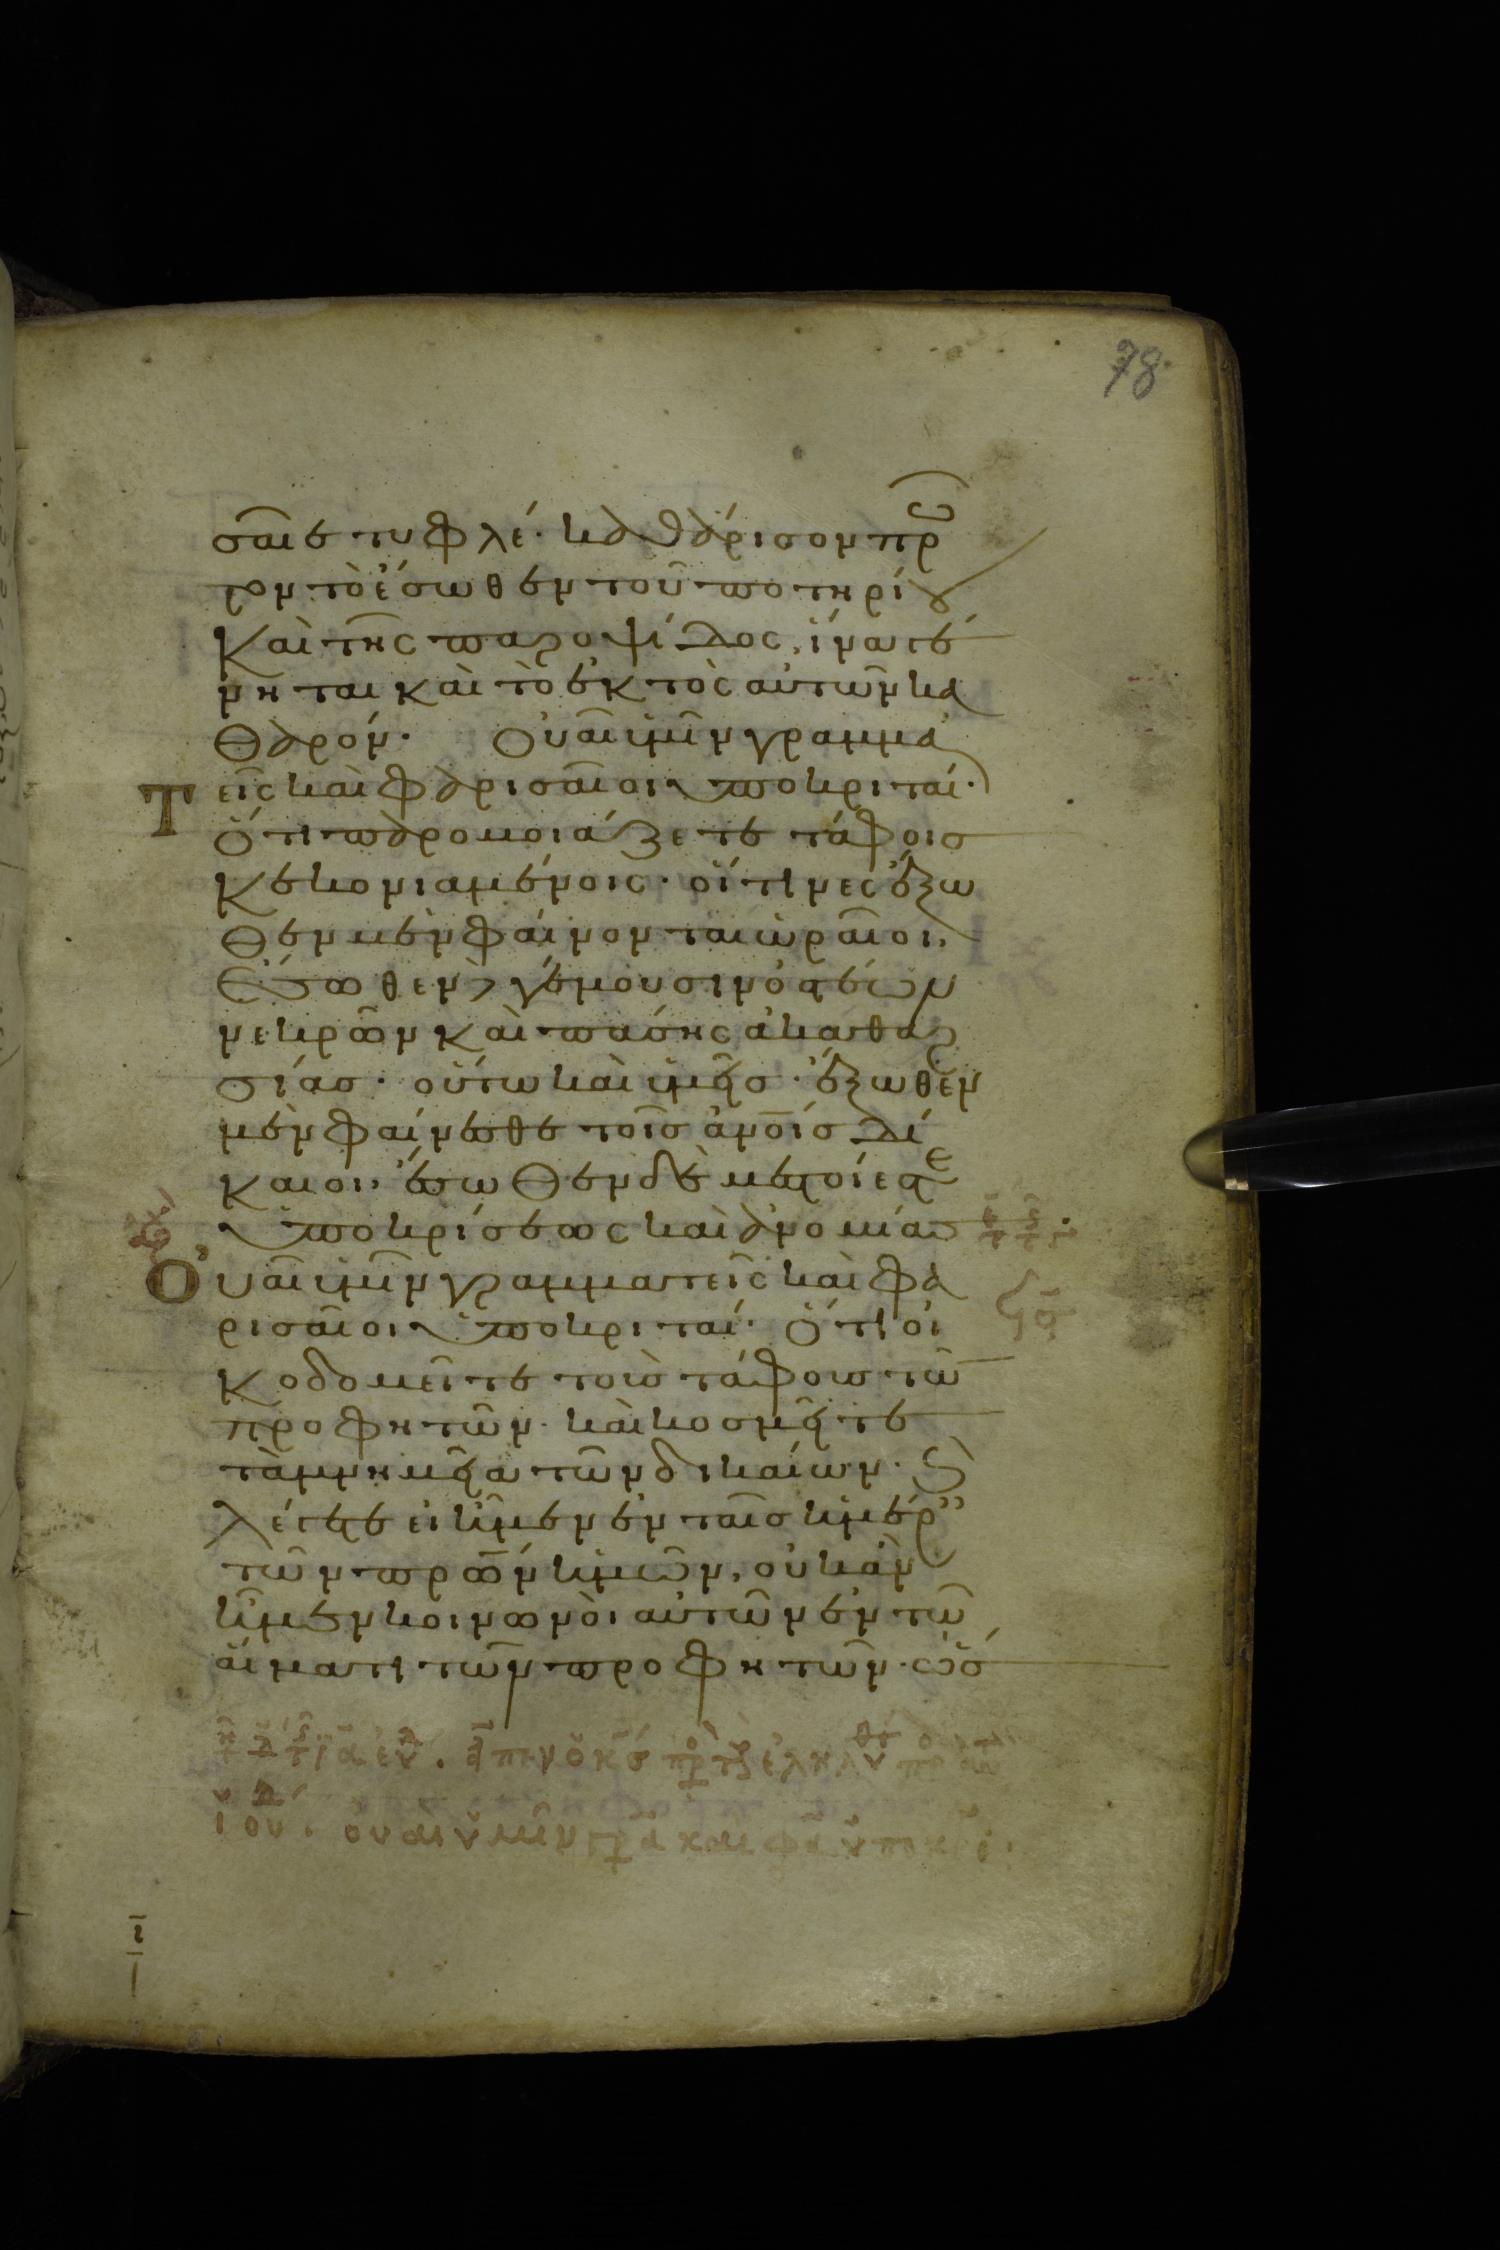 78
σαῖε τυφλέ· καθάρισον πρῶ
τον τὸ ἔσωθεν τοῦ ποτηρίου
καὶ τῆς παροψίδος, ἵνα γέ
νηται καὶ τὸ ἐκτὸς αὐτῶν κα
θαρόν· Οὐαῖ ὑμῖν γραμμα
τεῖς καὶ φαρισαῖοι ὑποκριταί·
ὅτι παρομοιάζετε τάφοις
κεκονιαμένοις· οἵτινες ἔξω
θεν μὲν φαίνονται ὡραῖοι,
ἔσωθεν δὲ γέμουσιν ὀστέων
νεκρῶν καὶ πάσης ἀκαθαρ
σίας· οὕτω καὶ ὑμεῖς· ἔξωθεν
μὲν φαίνεσθε τοῖς ἀνοῖς δί
καιοι, ἔσωθεν δὲ μεστοί ἐστε
ὑποκρίσεως καὶ ἀνομίας
Οὐαῖ ὑμῖν γραμματεῖς καὶ φα
ρισαῖοι ὑποκριταί· ὅτι οἰ
κοδομεῖτε τοὺς τάφους τῶ
προφητῶν· καὶ κοσμεῖτε
τὰ μνημεῖα τῶν δικαίων· καὶ
λέγετε εἰ ἦμεν ἐν ταῖς ἡμέραις
τῶν πρων ἡμῶν, οὐκ ἂν
ἦμεν κοινωνοὶ αὐτῶν ἐν τῶ
αἵματι τῶν προφητῶν· ὥσ
οὐαὶ ὑμῖν
ι